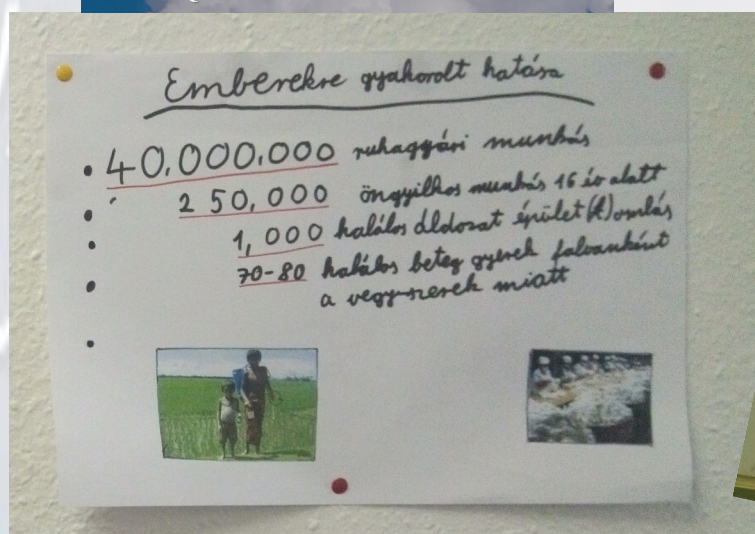 Emberekre gyakorolt hatása
• 40.000.000 ruhagyári munkás
• 250,000 öngyilkos munkás 16 év alatt
• 1,000 halálos áldozat épület(k)omlás
• 70-80 halálos beteg gyerek falvanként
a vegyszerek miatt
•